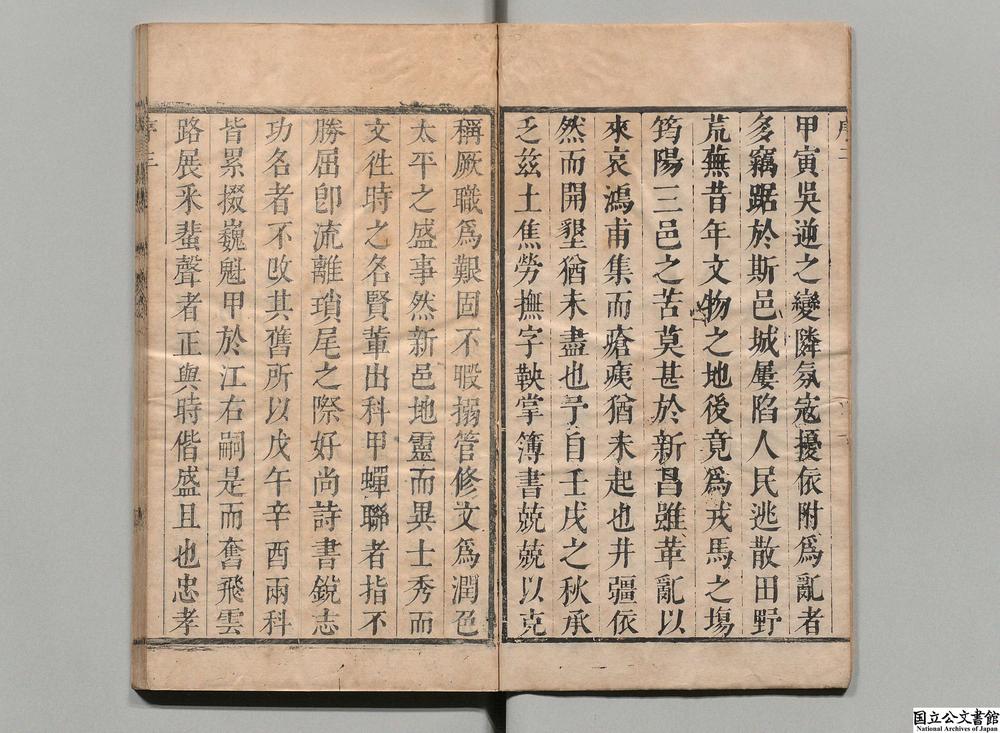 甲寅吳逆之變隣氛寇擾依附爲亂者
多竊踞於斯邑城屢陷人民逃散田野
荒蕪昔年文物之地後竟爲戎馬之塲
筠陽三邑之苦莫甚於新昌雖革亂以
來哀鴻甫集而瘡痍猶未起也井疆依
然而開墾猶未盡也予自壬戌之秋承
乏兹土焦勞撫字鞅掌簿書兢兢以克
稱厥職爲艱固不暇搦管修文爲潤色
太平之盛事然新邑地靈而異士秀而
文徃時之名賢輩出科甲蟬聯者指不
勝屈卽流離瑣尾之際好尚詩書銳志
功名者不改其舊所以戊午辛酉兩科
皆累掇巍魁甲於江右嗣是而奮飛雲
路展釆蜚聲者正與時偕盛且也忠孝
序三
国立公文書館
National Archives of Japan